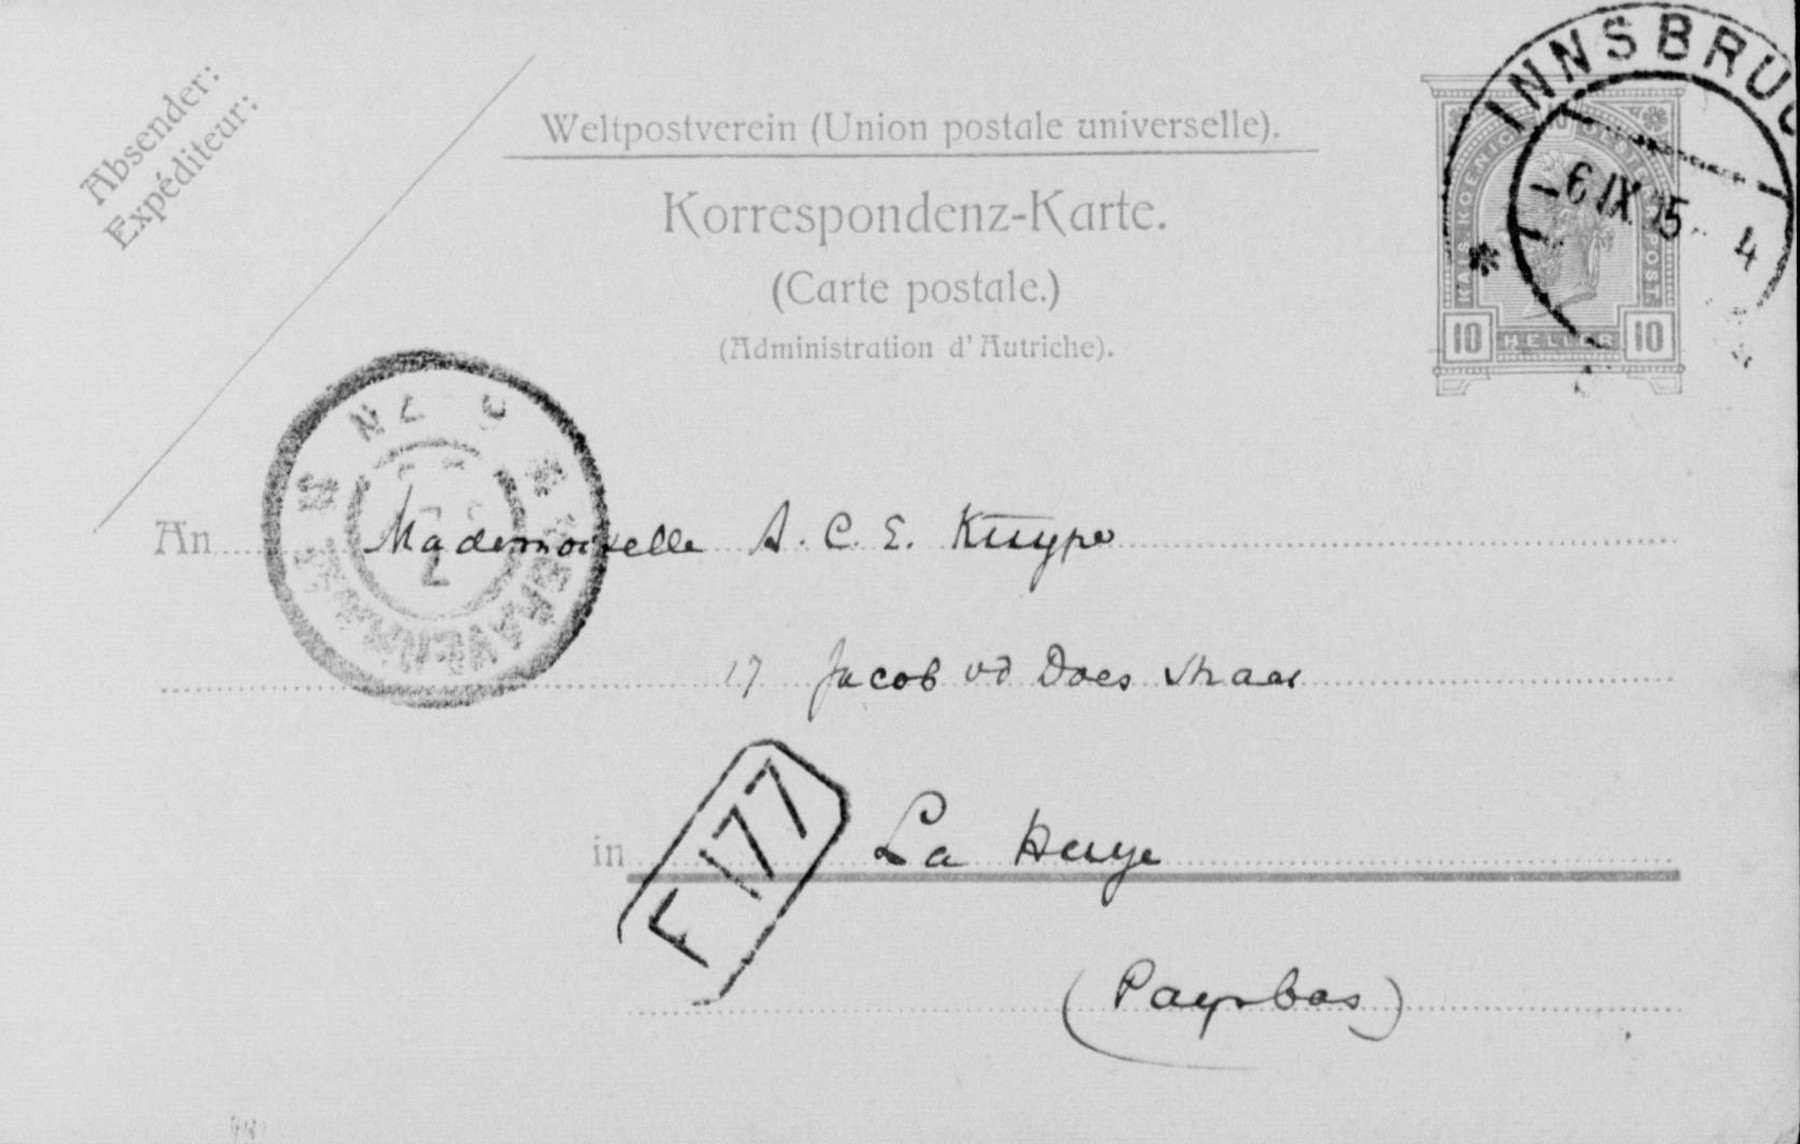 Absender:
Expéditeur:
Weltpostverein (Union postale universelle).
Korrespondenz-Karte.
(Carte postale.)
(Administration d'Autriche).
INNSBRUC
6 IX 05 4
KAIS. KOENIGL. OESTERR. POST.
10 HELLER 10
An Mademoiselle A. C. E. Kuyper
17 Jacob vd Does straat
F 177
in La Haye
(Paysbas)